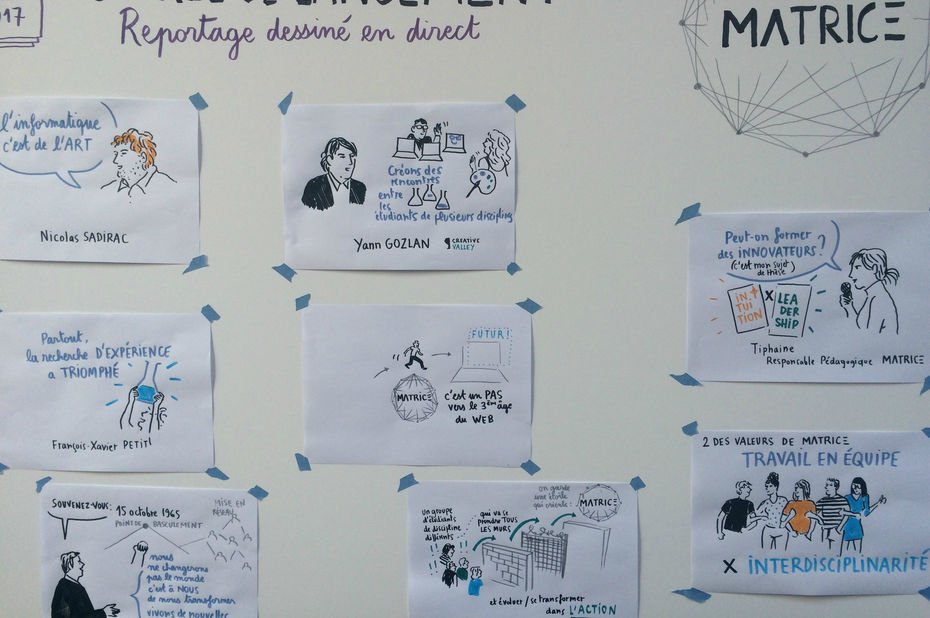 2017
Reportage dessiné en direct
MATRICE
l'informatique
c'est de l'ART
Nicolas SADIRAC
Créons des
rencontres
entre
les
étudiants de plusieurs disciplines
Yann GOZLAN
CREATIVE
VALLEY
Peut-on former
des INNOVATEURS ?
(c'est mon sujet
de thèse)
IN
TUI
TION
X
LEA
DER
SHIP
Tiphaine
Responsable Pédagogique MATRICE
Partout,
la recherche D'EXPÉRIENCE
a TRIOMPHÉ
François-Xavier PETIT
FUTUR!
MATRICE
c'est un PAS
vers le 3ème âge
du WEB
2 DES VALEURS DE MATRICE
TRAVAIL EN ÉQUIPE
X INTERDISCIPLINARITÉ
SOUVENEZ-VOUS:
15 octobre 1965
POINT DE BASCULEMENT
MISE EN
RÉSEAU
nous
ne changerons
pas le monde
c'est à NOUS
de nous transformer
vivons de nouvelles
un groupe
d'étudiants
de discipline
différents
qui va se
prendre TOUS
LES MURS
on garde
une étoile
qui oriente:
MATRICE
et évoluer / se transformer
dans L'ACTION